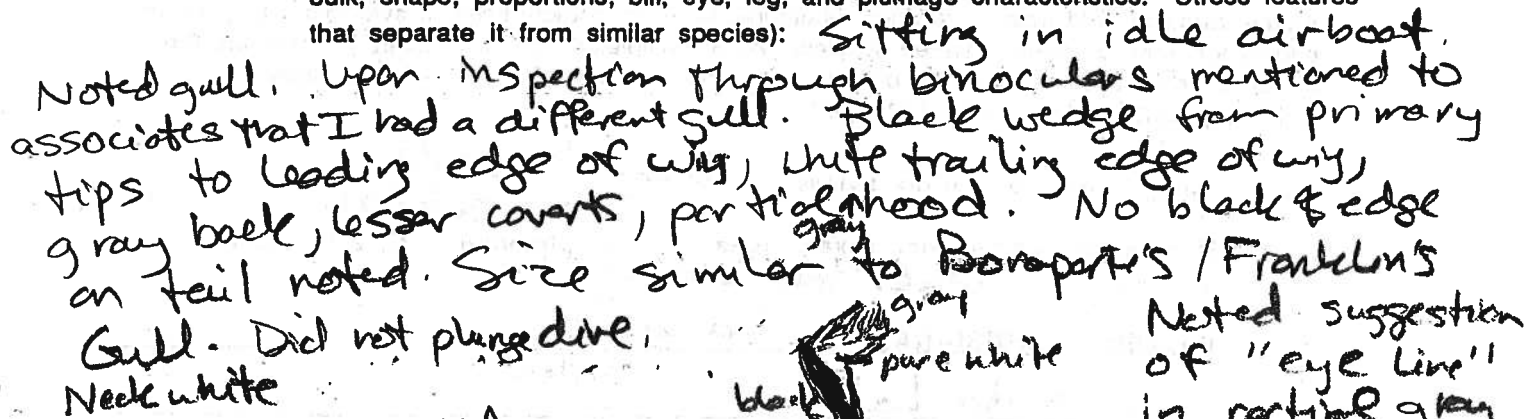 bulk, shape, proportions, bill, eye, leg, and plumage characteristics. Stress features
that separate it from similar species): Sitting in idle airboat.
Noted gull. Upon inspection through binoculars mentioned to
associates that I had a different gull. Black wedge from primary
tips to leading edge of wing, white trailing edge of wing,
gray back, lesser coverts, partial gray hood. No black edge
on tail noted. Size similar to Bonaparte's / Franklin's
Gull. Did not plunge dive.
Neck white
gray
pure white
black
Noted suggestion
of "eye line"
in partial gray